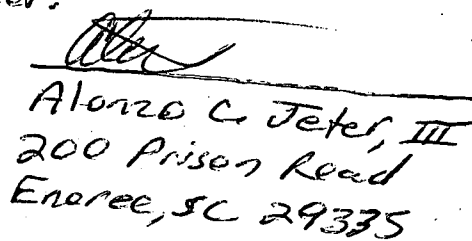 Alonzo C. Jeter, III
200 Prison Road
Enoree, SC 29335